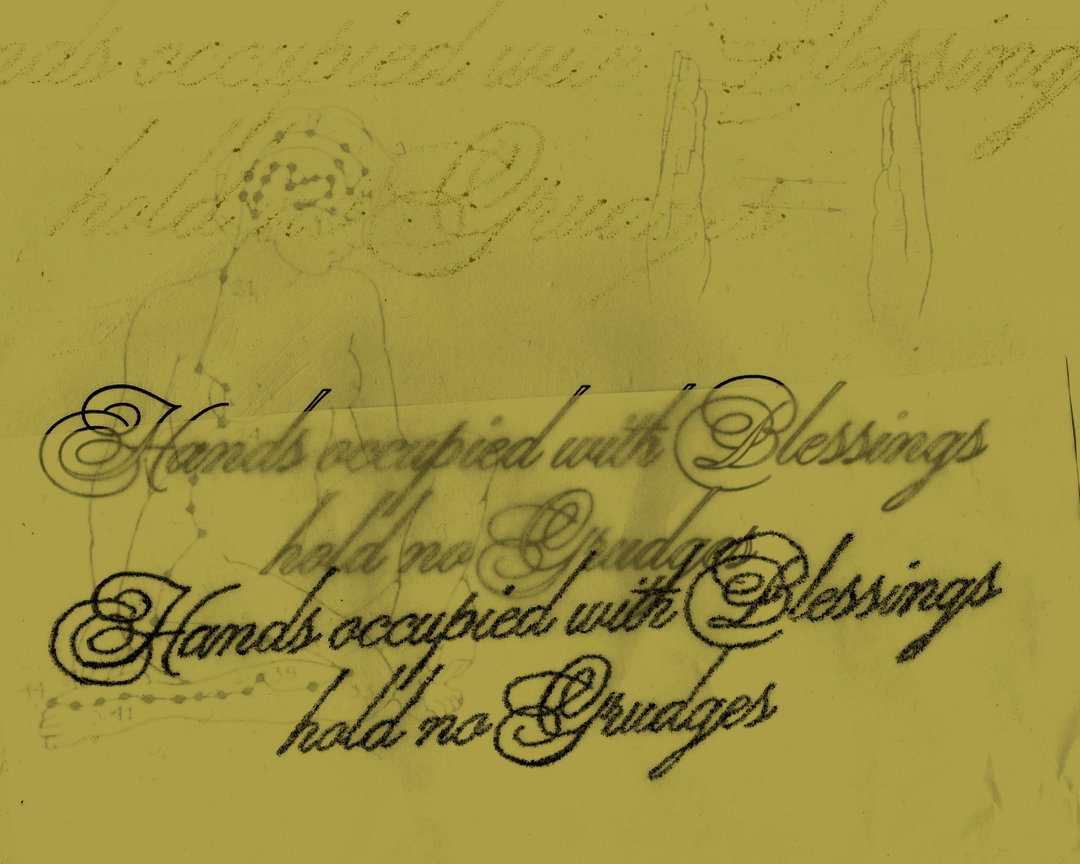 occupied with Blessing
hold Grudges
21
Hands occupied with Blessings
hold no Grudges
Hands occupied with Blessings
hold no Grudges
44
35
41